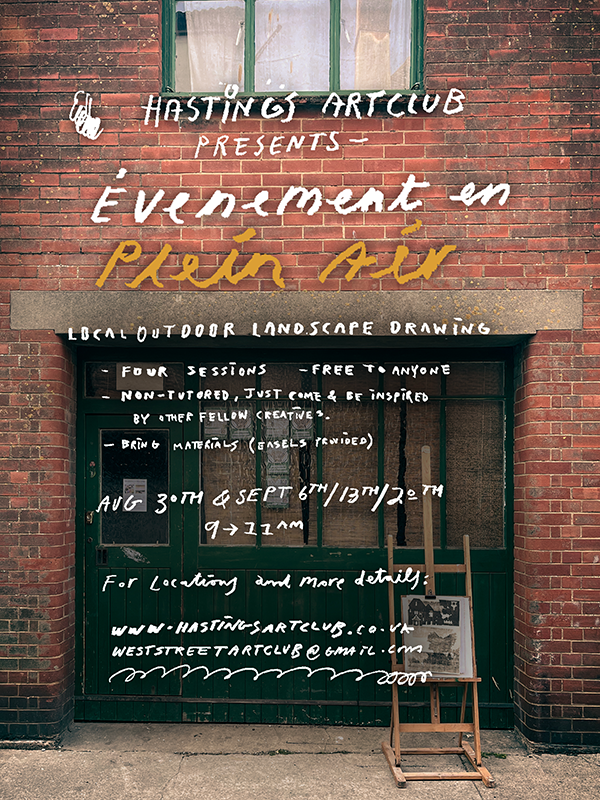 HASTINGS ARTCLUB
PRESENTS—
Évenement en
Plein Air
LOCAL OUTDOOR LANDSCAPE DRAWING
- FOUR SESSIONS -FREE TO ANYONE
- NON-TUTORED, JUST COME & BE INSPIRED
BY OTHER FELLOW CREATIVES.
- BRING MATERIALS (EASELS PROVIDED)
AUG 30TH & SEPT 6TH/13TH/20TH
9→11AM
For Locations and more details:
WWW.HASTINGSARTCLUB.CO.UK
WESTSTREETARTCLUB@GMAIL.COM